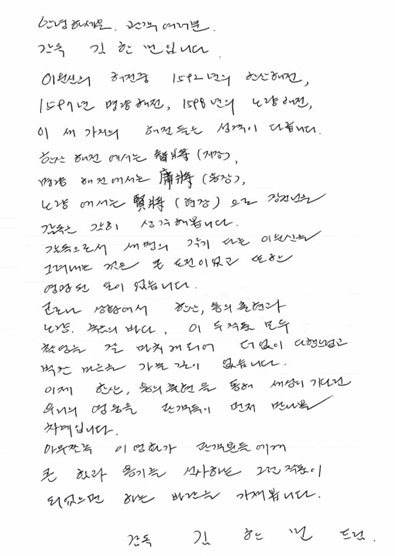 안녕하세요. 관객 여러분.
감독 김한민입니다.
이순신의 해전중 1592년의 한산해전,
1597년 명량해전, 1598년의 노량해전,
이 세가지의 해전들은 성격이 다릅니다.
한산 해전에서는 智將 (지장),
명량 해전에서는 勇將 (용장),
노량 에서는 賢將 (현장) 으로 김한민은
감독은 감히 생각해봅니다.
감독으로서 세명의 각기 다른 이순신을
그려내는 것은 큰 도전이었고 또한
영광된 일이 었습니다.
코로나 상황에서 한산, 용의 출현과
노량. 죽음의 바다. 이 두작품 모두
촬영을 잘 마치게되어 더없이 다행스럽고
벅찬 마음을 가눌 길이 없습니다.
이제 한산, 용의출현 을 통해 세상이 기다려
우리의 영웅을 관객들이 먼저 만나볼
차례입니다.
아무쪼록 이 영화가 관객분들 에게
큰 힘과 용기를 선사하는 그런 작품이
되었으면 하는 바람을 가져봅니다.
감독 김 한 민 드림.